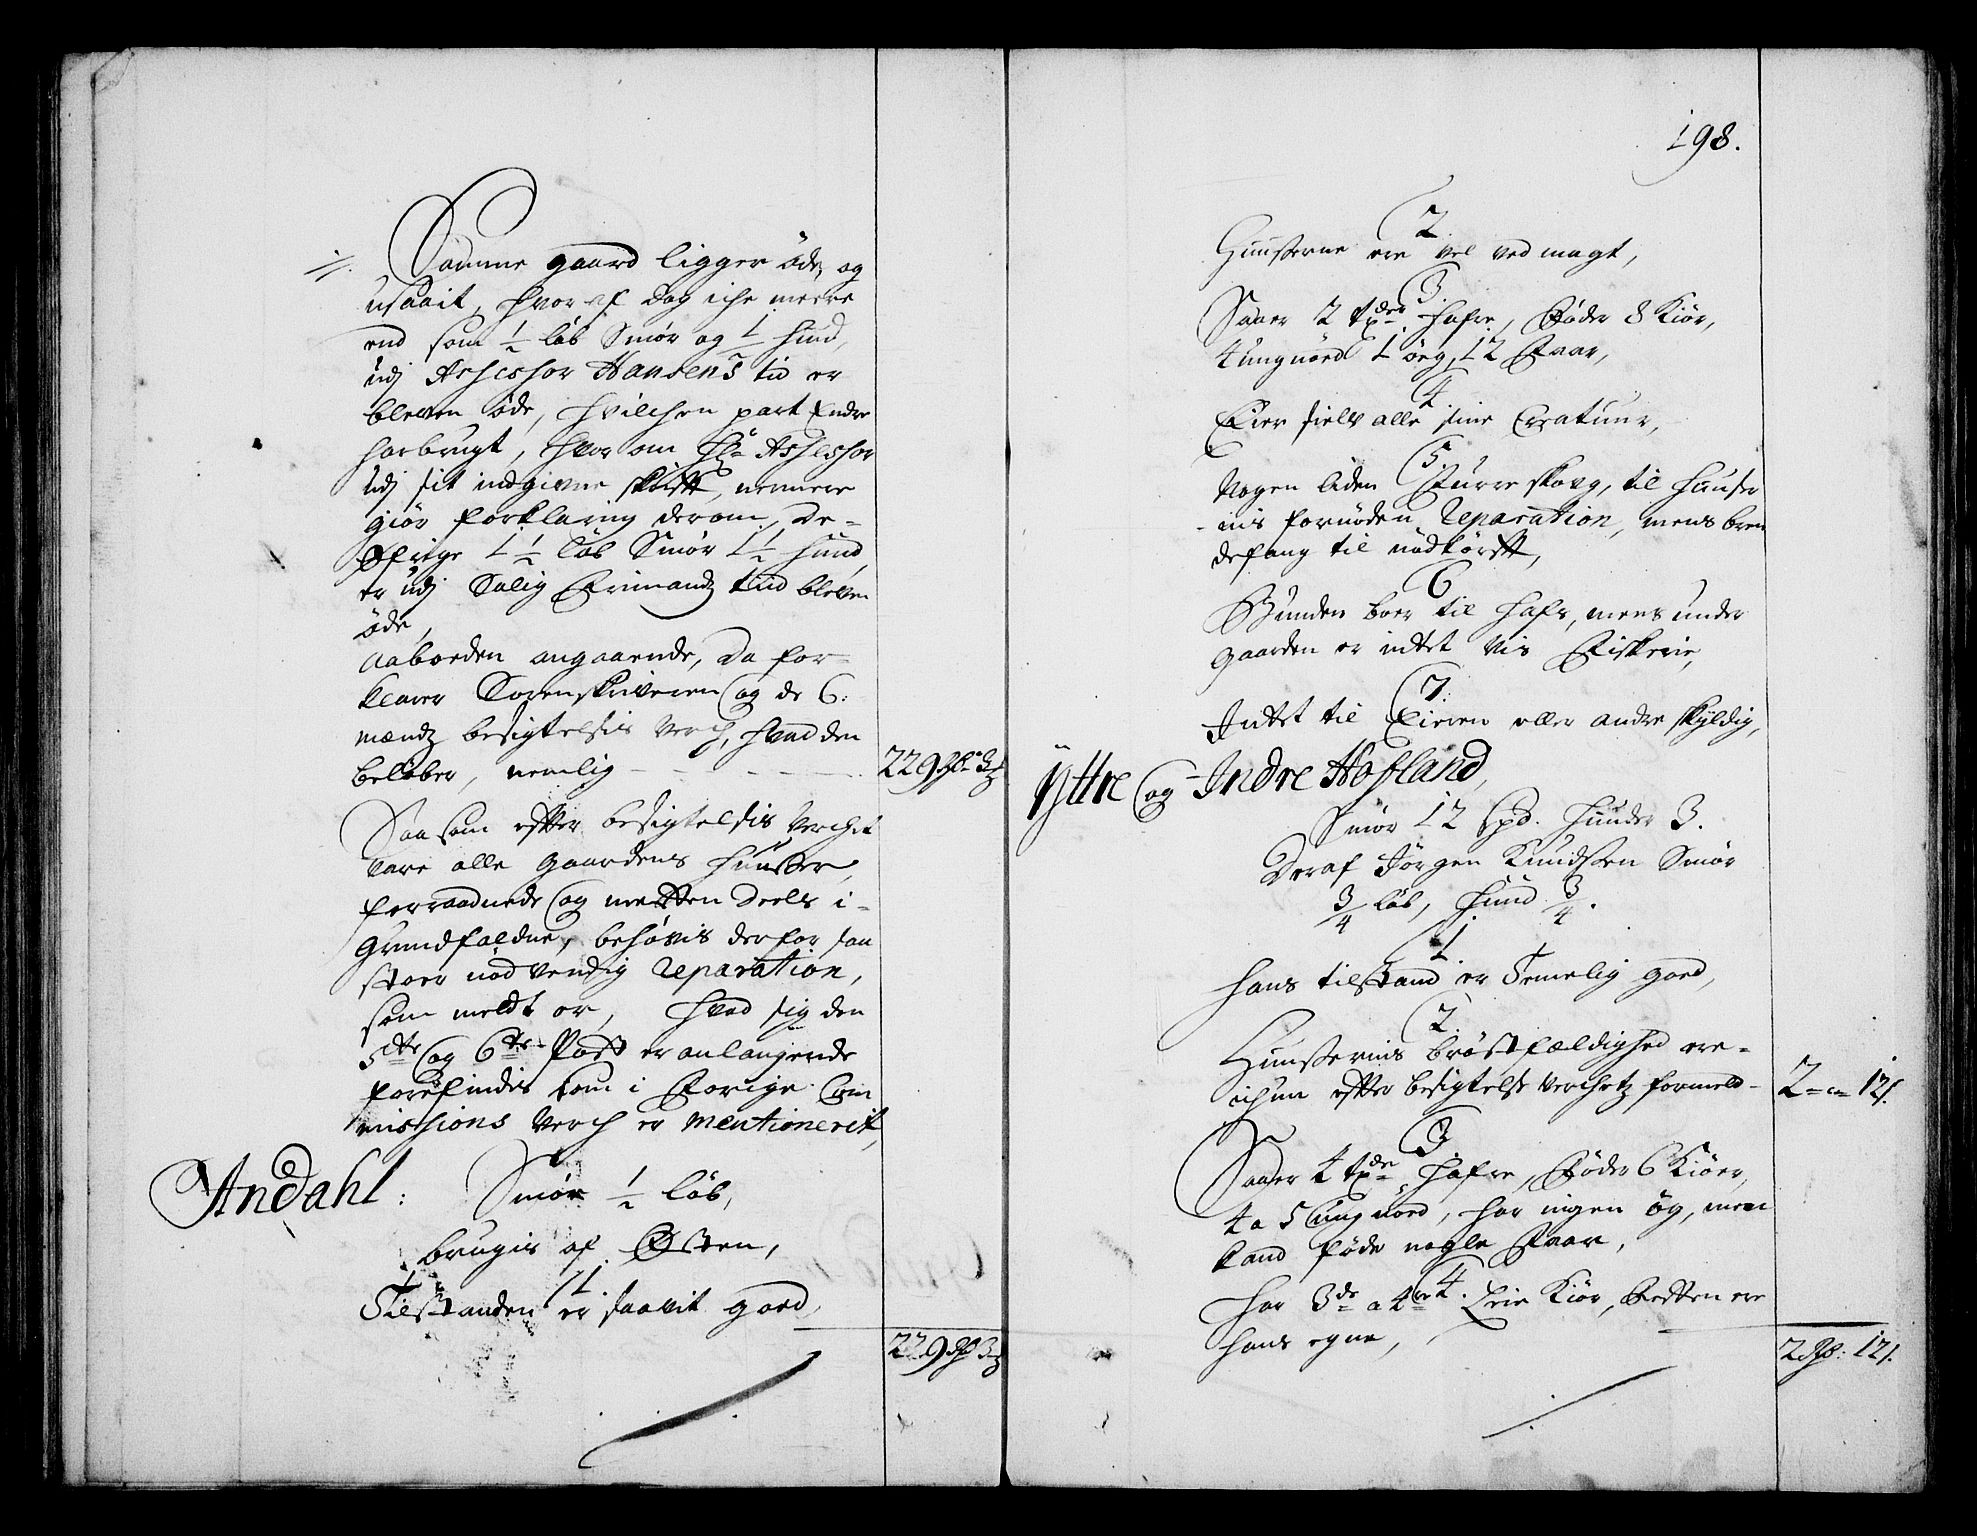 Samme gaard ligger øde, og
usaait, hvor af dog iche meere
end som 1/2 løb Smør og 1 hud,
udj Assessor Hansens tid er
bleven øde, hvilchen part Endre
har brugt, hvor om Hr Assessor
udj sit indgivne skrifft, nermere
giør forklaring derom, De-
øfrige 1 1/2 løb Smør 1 1/2 hud
er udj Salig tid bleven
øde,
Aaboeden angaaende, da for-
klarer Sorenskriveren og de 6:
mændz besigtelsis verch, hvad den
beløber, nemlig - - - -
229 Rdr 3
Saa som effter besigtelsis verchet
vare alle gaardens huuse,
forraadnede og mesten deels i-
grundfaldne, behøvis derfor saa
stoer nødvendig reparation,
som meldt er, hvad sig den
5te og 6te Post er anlangende
forefindis som i Forrige Com
missions verch er mentionerit,
Andahl: Smør 1/2 løb,
brugis af Østen,
1.
Tilstanden er saavit goed,
229 Rdr 3
198.
2.
Huuserne ere vel ved magt,
3.
Saaer 2 tdr hafre, Føder 8 Kiør,
4 ungnød 1 øeg, 12 Faar,
4
Eier sielv alle sine Creatuur,
5.
Nogen liden Furre skovg, til huuser
nis fornøden Reparation, mens bren
defang til nødtørfft,
6
Bunden boer til hafs, mens under
gaarden er intet vis Fiskerie,
7.
Intet til Eieren eller andre skyldig,
Yttre og Indre Hofland,
Smør 12 spd. Huuder 3.
Deraf Jørgen Knudssen Smør
3/4 løb, Hud 3/4.
1.
hans tilstand er Temelig goed,
2.
Huusernis brøstfældighed ere-
ichun effter besigtelse verchetz formeld-
2 - 12 s.
3
Saaer 4 tdr hafre, Føder 6 Kiøer,
4 a 5 ungnød, har ingen øg, men
kand føde nogle Faar,
4.
har 3de a 4re Leie Kiør, Resten ere
hans egne,
2 Rdr: 12 s.